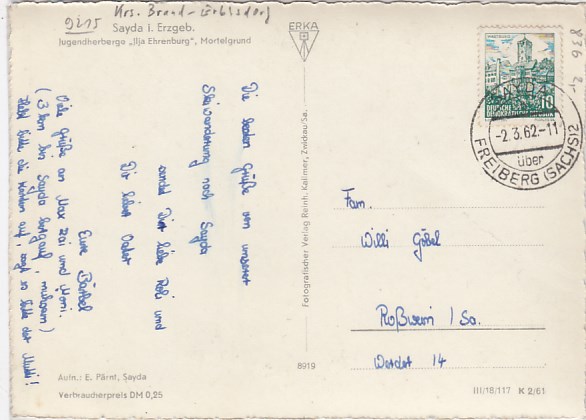 9215 Krs. Brand-Erbisdorf
Sayda i. Erzgeb.
Jugendherberge „Ilja Ehrenburg", Mortelgrund
ERKA
Die besten Grüße von unserer
Skiwanderung nach Sayda
sendet Dir liebe Romi und
Dir lieber Vater
Eure Bärbel
Viele Grüße an Max und Moni.
(3 km bis Sayda bergauf, mühsam)
Hebt bitte die Karten auf, sagt es bitte der Mutti!
Aufn.: E. Pärnt, Sayda
Verbraucherpreis DM 0,25
Fotografischer Verlag Reinh. Kallmer, Zwickau/Sa.
8919
DEUTSCHE
DEMOKRATISCHE REPUBLIK
10
SAYDA
-2.3.62-11
über
FREIBERG (SACHS) 2
Fam.
Willi Göbel
Roßwein / Sa.
Werder 14
III/18/117 K 2/61